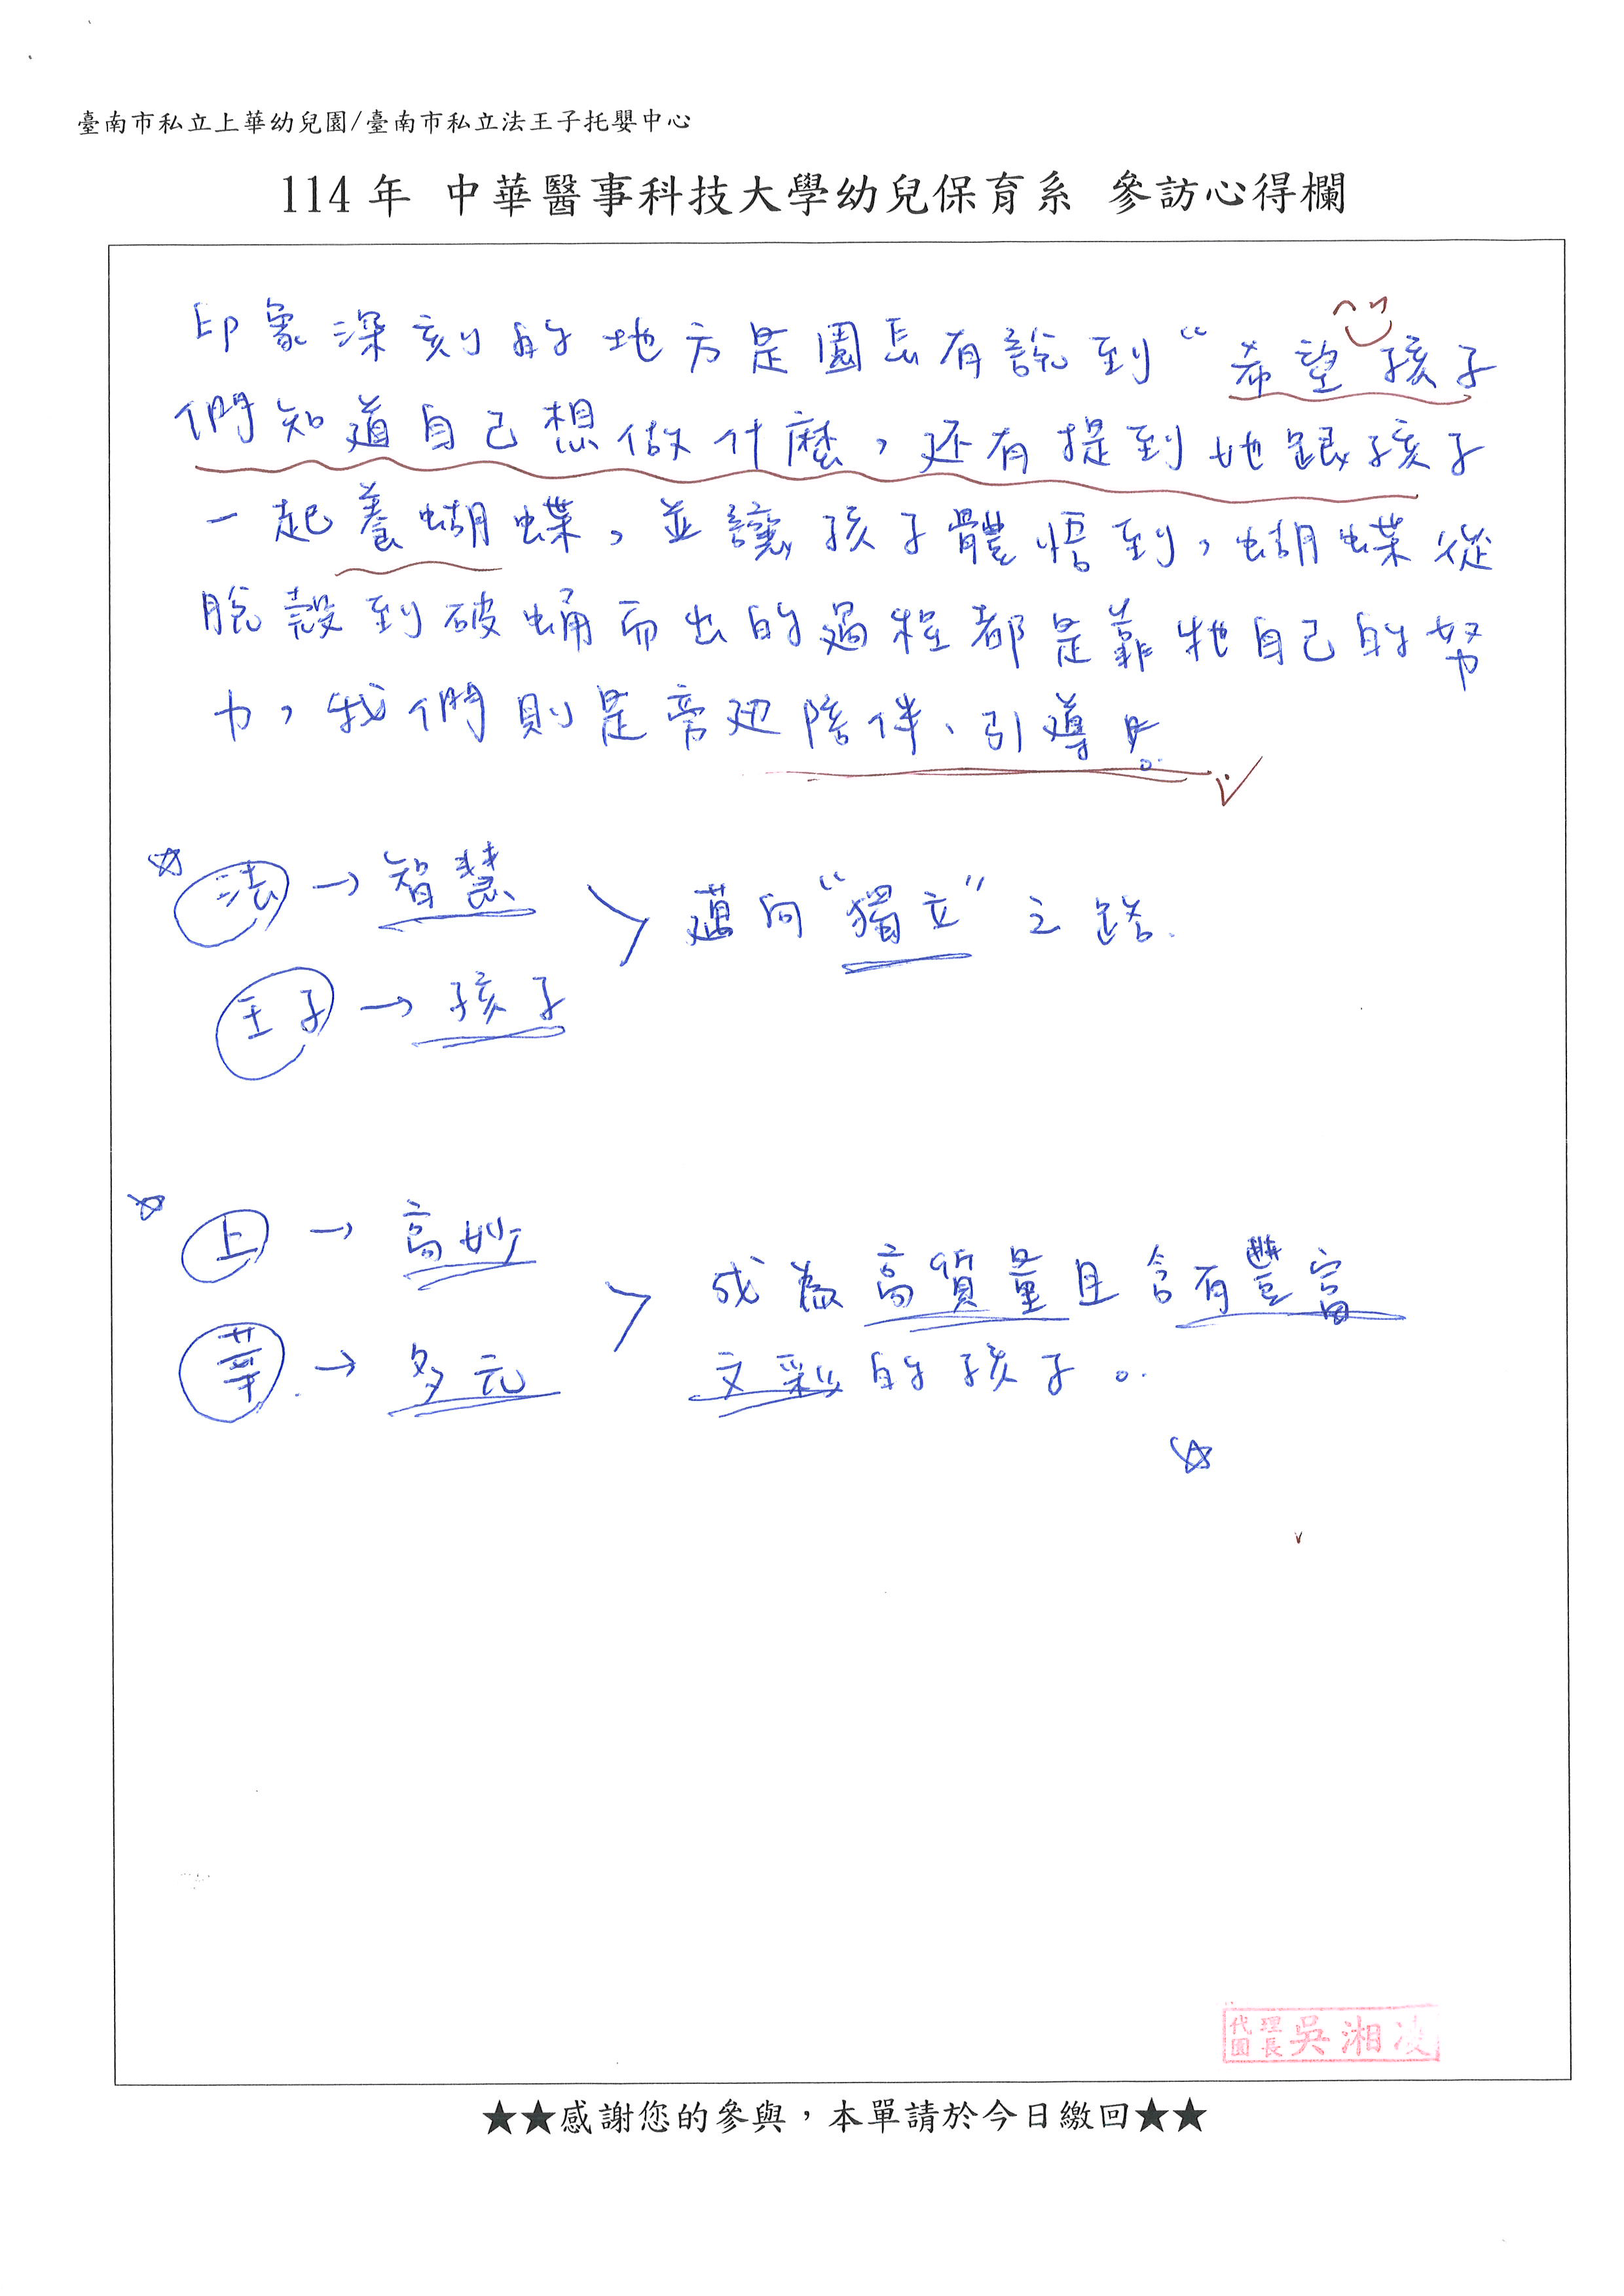 臺南市私立上華幼兒園/臺南市私立法王子托嬰中心
114年 中華醫事科技大學幼兒保育系 參訪心得欄
印象深刻的地方是園長有說到“希望孩子
們知道自己想做什麼,还有提到她跟孩子
一起養蝴蝶,並讓孩子體悟到,蝴蝶從
脫殼到破蛹而出的過程都是靠牠自己的努
力,我們則是旁边陪伴、引導。
☆ 法→智慧
邁向“獨立”之路.
王子→孩子
☆ 上→高妙
成為高質量且含有豐富
華→多元
文彩的孩子。
☆
代理園長吳湘凌
★★感謝您的參與,本單請於今日繳回★★